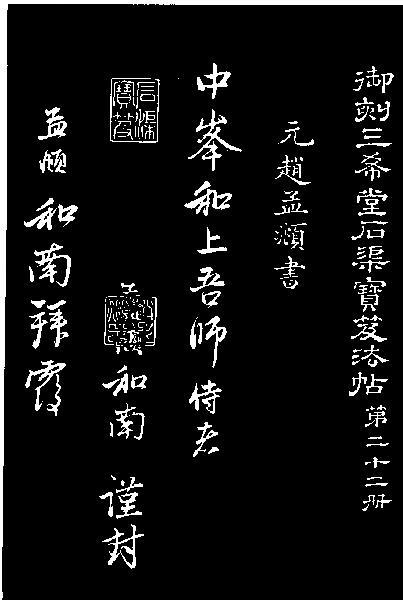 御刻三希堂石渠寶笈法帖第二十二册
元趙孟頫書
中峯和上吾師侍者
石渠寶笈
和南謹封
孟頫和南拜覆